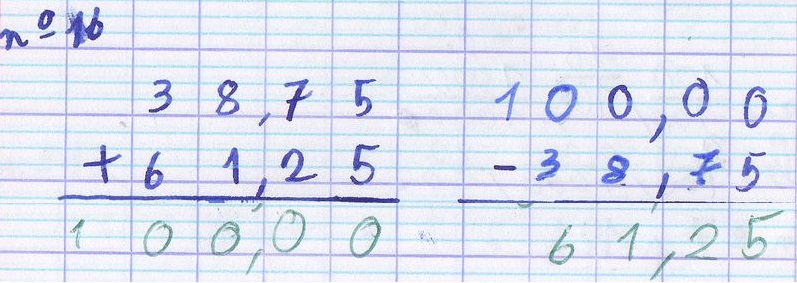 nº 16
38,75 100,00
+61,25 -38,75
100,00 61,25